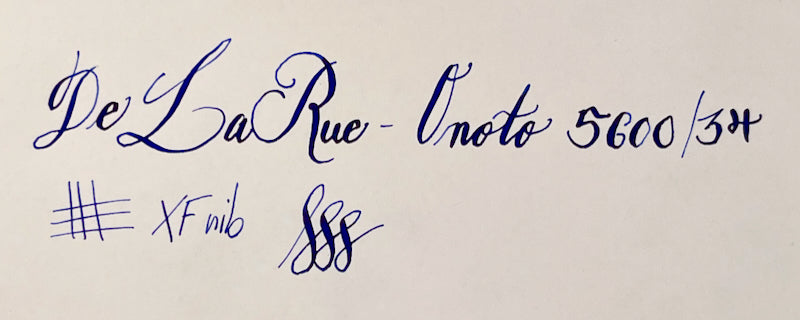 De La Rue - Onoto 5600/34
XF nib